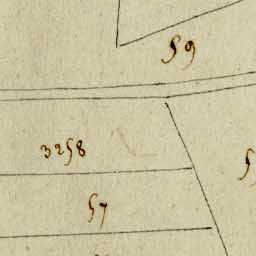 59
3258
57
5